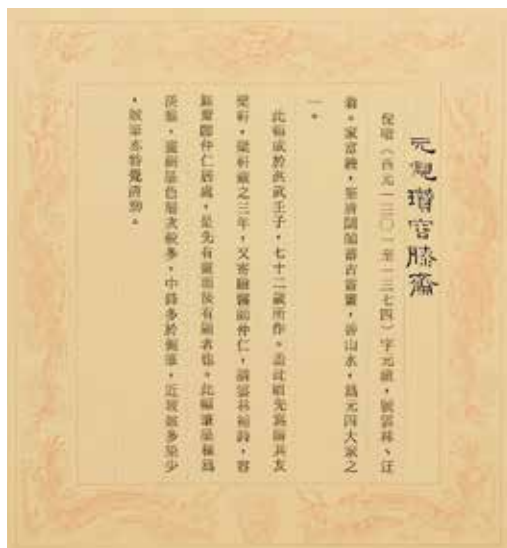 元倪瓚容膝齋
倪瓚（西元一三〇一至一三七四）字元鎮，號雲林、迂
翁。家富饒，築清閟閣蓄古書畫，善山水，為元四大家之
一。
此幅成於洪武壬子，七十二歲所作。蓋此幀先為贈其友
檗軒，檗軒藏之三年，又寄贈醫師仲仁，請雲林補詩，容
膝齋即仲仁居處，是先有畫而後有題者也。此幅筆墨極為
淡雅，畫樹墨色層次較多，中鋒多於側筆，近坡皴多染少
，皴筆亦特覺清朗。